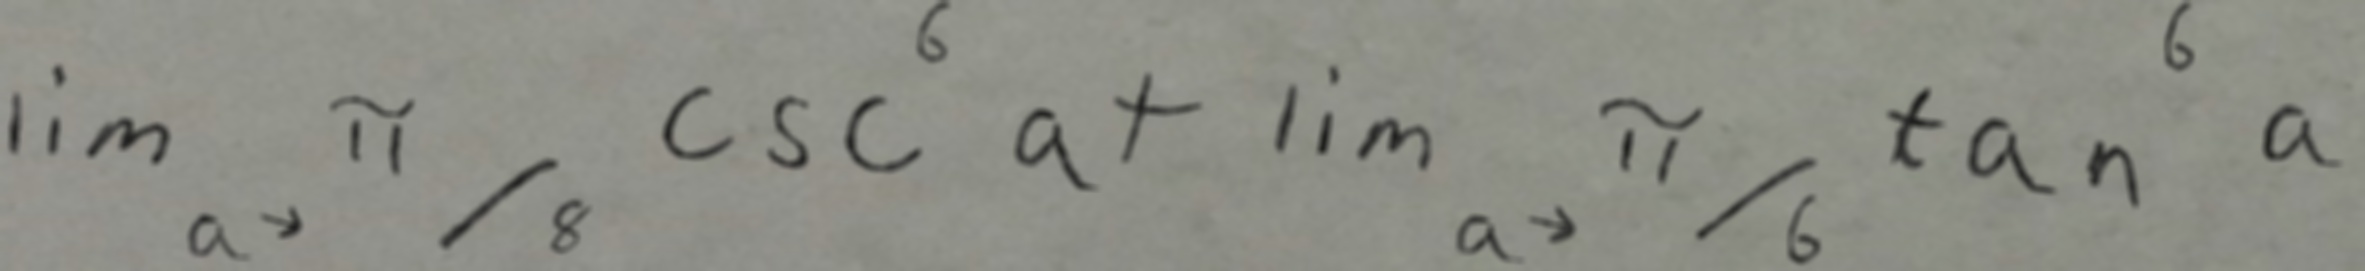 \lim_{a \to \pi/8} \csc^6 a + \lim_{a \to \pi/6} \tan^6 a